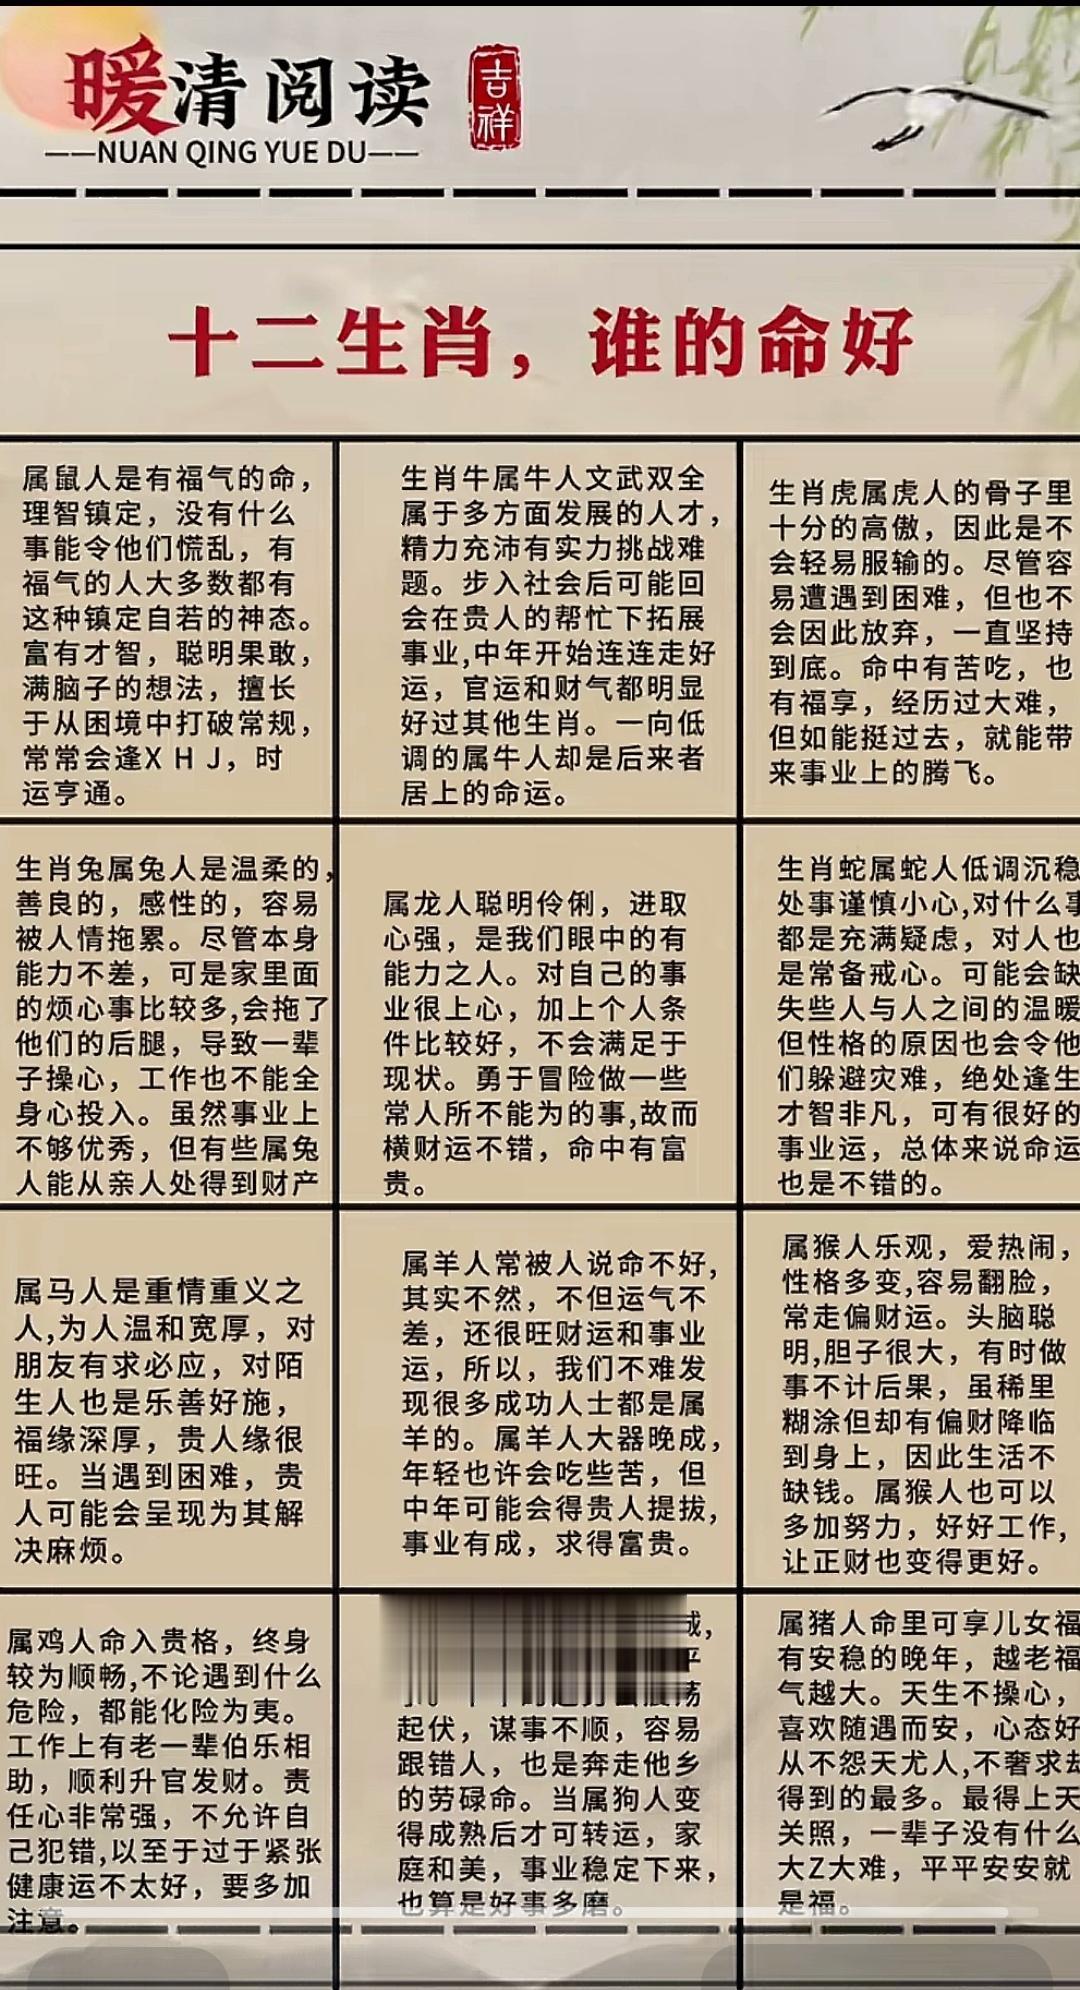 暖清阅读
吉祥
——NUAN QING YUE DU——
十二生肖，谁的命好
属鼠人是有福气的命，
理智镇定，没有什么
事能令他们慌乱，有
福气的人大多数都有
这种镇定自若的神态。
富有才智，聪明果敢，
满脑子的想法，擅长
于从困境中打破常规，
常常会逢X H J，时
运亨通。
生肖牛属牛人文武双全
属于多方面发展的人才，
精力充沛有实力挑战难
题。步入社会后可能回
会在贵人的帮忙下拓展
事业,中年开始连连走好
运，官运和财气都明显
好过其他生肖。一向低
调的属牛人却是后来者
居上的命运。
生肖虎属虎人的骨子里
十分的高傲，因此是不
会轻易服输的。尽管容
易遭遇到困难，但也不
会因此放弃，一直坚持
到底。命中有苦吃，也
有福享，经历过大难，
但如能挺过去，就能带
来事业上的腾飞。
生肖兔属兔人是温柔的，
善良的，感性的，容易
被人情拖累。尽管本身
能力不差，可是家里面
的烦心事比较多,会拖了
他们的后腿，导致一辈
子操心，工作也不能全
身心投入。虽然事业上
不够优秀，但有些属兔
人能从亲人处得到财产
属龙人聪明伶俐，进取
心强，是我们眼中的有
能力之人。对自己的事
业很上心，加上个人条
件比较好，不会满足于
现状。勇于冒险做一些
常人所不能为的事,故而
横财运不错，命中有富
贵。
生肖蛇属蛇人低调沉稳
处事谨慎小心,对什么事
都是充满疑虑，对人也
是常备戒心。可能会缺
失些人与人之间的温暖
但性格的原因也会令他
们躲避灾难，绝处逢生
才智非凡，可有很好的
事业运，总体来说命运
也是不错的。
属马人是重情重义之
人,为人温和宽厚，对
朋友有求必应，对陌
生人也是乐善好施，
福缘深厚，贵人缘很
旺。当遇到困难，贵
人可能会呈现为其解
决麻烦。
属羊人常被人说命不好，
其实不然，不但运气不
差，还很旺财运和事业
运，所以，我们不难发
现很多成功人士都是属
羊的。属羊人大器晚成，
年轻也许会吃些苦，但
中年可能会得贵人提拔，
事业有成，求得富贵。
属猴人乐观，爱热闹，
性格多变,容易翻脸，
常走偏财运。头脑聪
明,胆子很大，有时做
事不计后果，虽稀里
糊涂但却有偏财降临
到身上，因此生活不
缺钱。属猴人也可以
多加努力，好好工作，
让正财也变得更好。
属鸡人命入贵格，终身
较为顺畅,不论遇到什么
危险，都能化险为夷。
工作上有老一辈伯乐相
助，顺利升官发财。责
任心非常强，不允许自
己犯错,以至于过于紧张
健康运不太好，要多加
注意。
起伏，谋事不顺，容易
跟错人，也是奔走他乡
的劳碌命。当属狗人变
得成熟后才可转运，家
庭和美，事业稳定下来，
也算是好事多磨。
属猪人命里可享儿女福
有安稳的晚年，越老福
气越大。天生不操心，
喜欢随遇而安，心态好
从不怨天尤人,不奢求却
得到的最多。最得上天
关照，一辈子没有什么
大Z大难，平平安安就
是福。